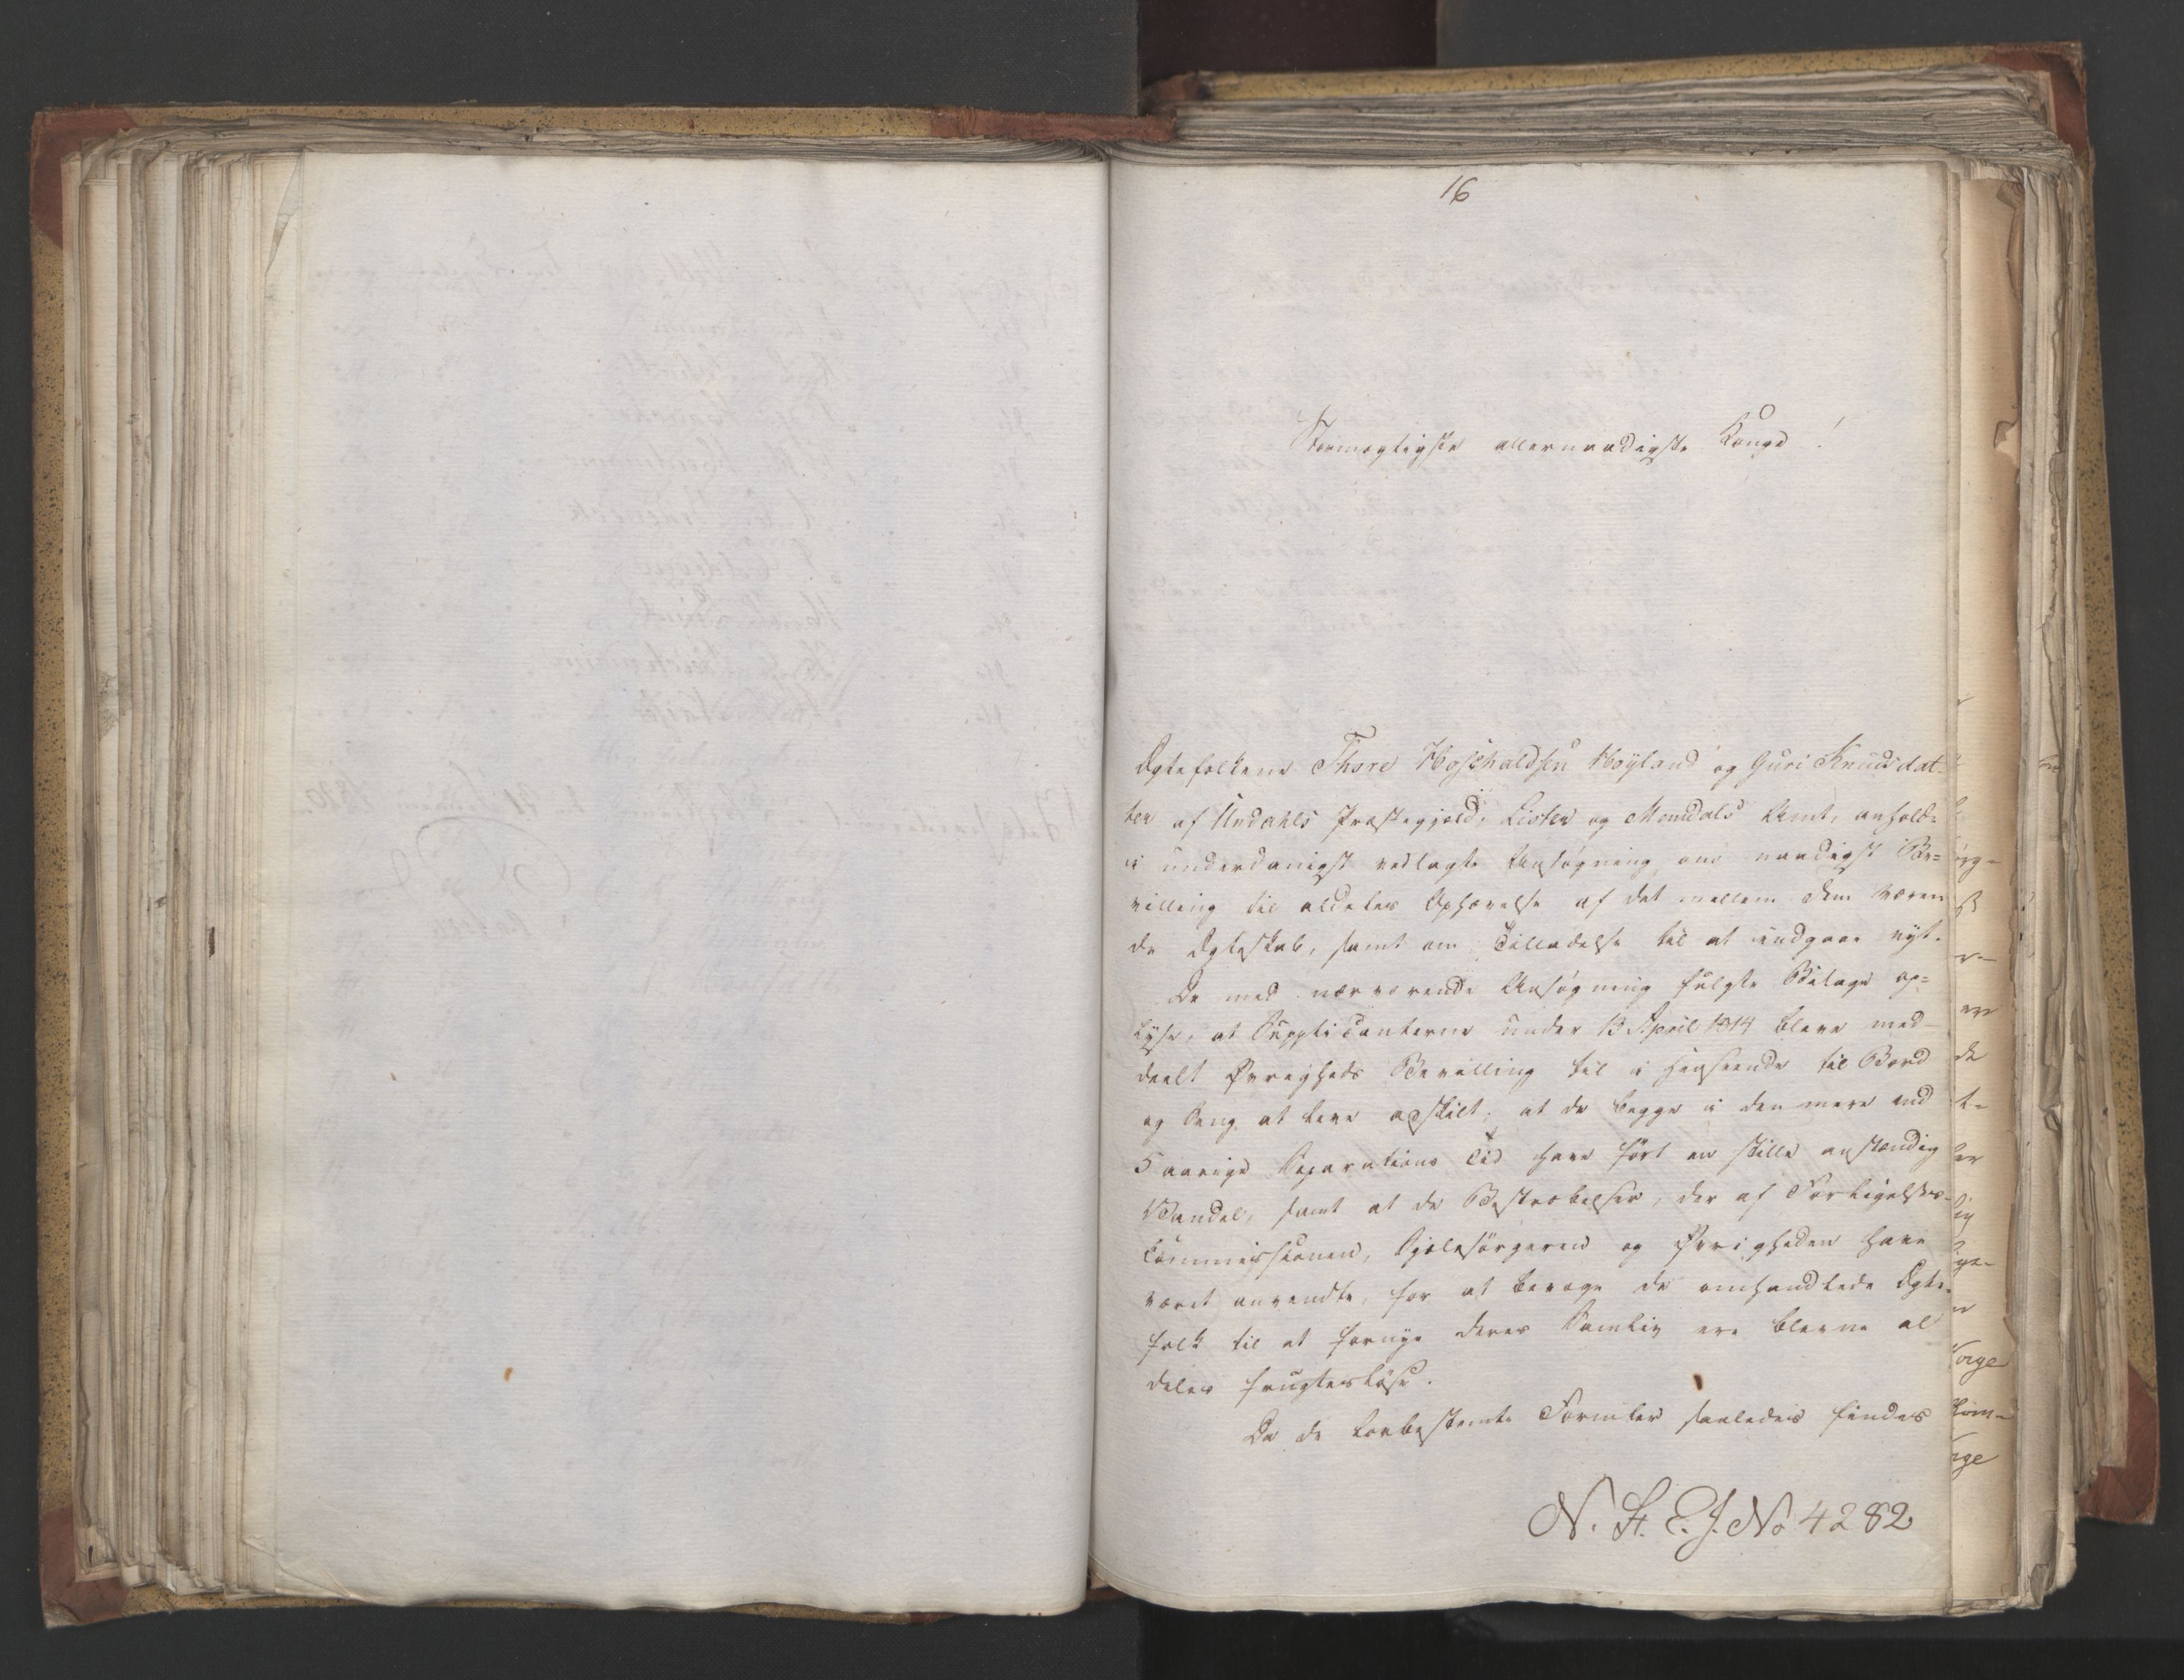 16
Stormægtigste allernaadigste Konge!
Ægtefolkene Thore Hoschaldsen Høyland og Guri Knudsdat-
ter af Undahls Præstegjeld, Lister og Mandals Amt, anhold-
i underdanigst vedlagte Ansøgning om naadigst Be-
villing til aldeles Ophævelse af det mellem dem væren
de Ægteskab, samt om Tilladelse til at indgaae nyt.
De med nærværende Ansøgning fulgte Bilage op-
lyse, at Supplicanterne under 13 April 1814 bleve med-
deelt Øvrigheds Bevilling til i Henseende til Bord
og Seng at leve adskilt; at de begge i den mere end
5 aarige Separations Tid have ført en stille anstændig
Vandel, samt at de Bestræbelser, der af Forligelses-
Commissionen, Sjælesørgeren og Øvrigheden have
været anvendte, for at bevæge de omhandlede Ægte-
folk til at fornye deres Samliv ere blevne al
deles frugtesløse.
Da de lovbestemte Formler saaledes findes
N. St. E. J. No 4282